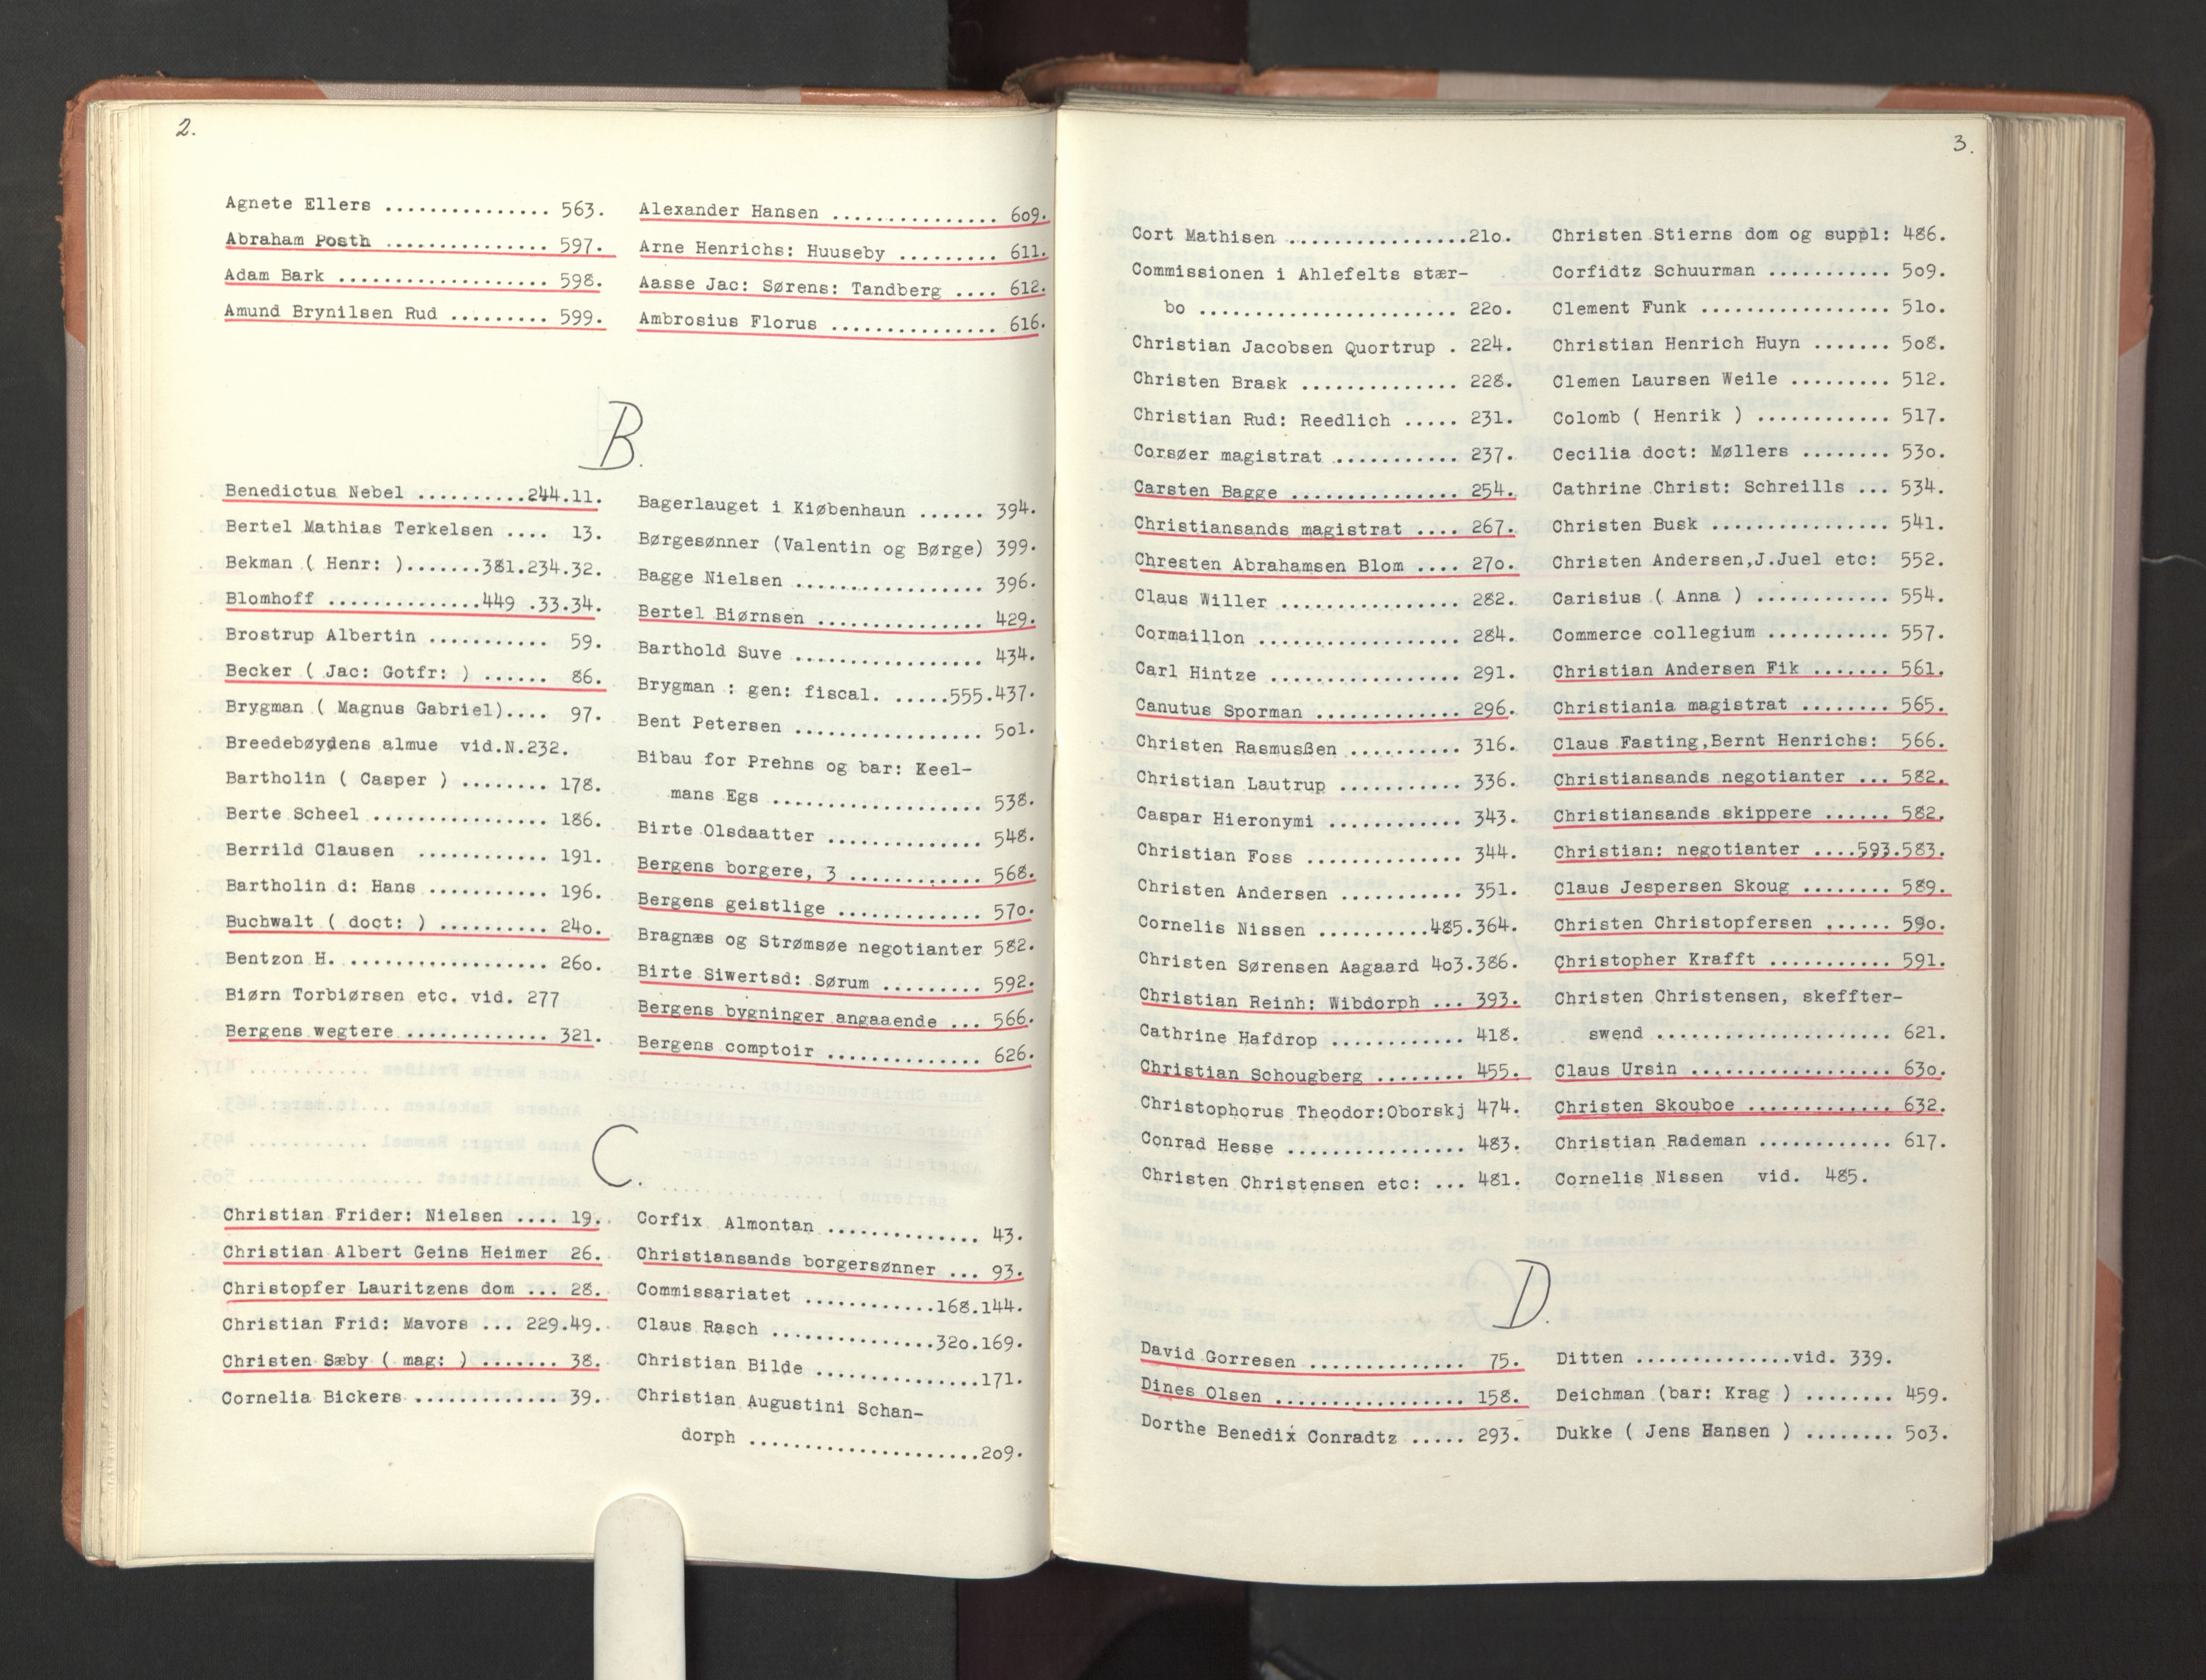 2.
Agnete Ellers ............... 563.
Abraham Posth ............... 597.
Adam Bark ................... 598.
Amund Brynilsen Rud ......... 599.
Alexander Hansen ............... 609.
Arne Henrichs: Huuseby ......... 611.
Aasse Jac: Sørens: Tandberg .... 612.
Ambrosius Florus ............... 616.
B.
Benedictus Nebel ..........244.11.
Bertel Mathias Terkelsen .... 13.
Bekman ( Henr: ).......381.234.32.
Blomhoff ..............449 .33.34.
Brostrup Albertin ........... 59.
Becker ( Jac: Gotfr: ) ...... 86.
Brygman ( Magnus Gabriel).... 97.
Breedebøydens almue vid.N.232.
Bartholin ( Casper ) ........ 178.
Berte Scheel ................ 186.
Berrild Clausen ............ 191.
Bartholin d: Hans ........... 196.
Buchwalt ( doct: ) .......... 240.
Bentzon H. .................. 260.
Biørn Torbiørsen etc. vid. 277
Bergens wegtere ............. 321.
Bagerlauget i Kiøbenhaun ...... 394.
Børgesønner (Valentin og Børge) 399.
Bagge Nielsen ................. 396.
Bertel Biørnsen ............... 429.
Barthold Suve ................. 434.
Brygman : gen: fiscal. ......555.437.
Bent Petersen ................. 501.
Bibau for Prehns og bar: Keel-
mans Egs ................... 538.
Birte Olsdaatter .............. 548.
Bergens borgere, 3 ............ 568.
Bergens geistlige ............. 570.
Bragnæs og Strømsøe negotianter 582.
Birte Siwertsd: Sørum ......... 592.
Bergens bygninger angaaende ... 566.
Bergens comptoir .............. 626.
C.
Christian Frider: Nielsen .... 19.
Christian Albert Geins Heimer 26.
Christopfer Lauritzens dom ... 28.
Christian Frid: Mavors ... 229.49.
Christen Sæby ( mag: ) ....... 38.
Cornelia Bickers ............. 39.
Corfix Almontan .............. 43.
Christiansands borgersønner ... 93.
Commissariatet ............168.144.
Claus Rasch ...............320.169.
Christian Bilde ...............171.
Christian Augustini Schan-
dorph .....................209.
3.
Cort Mathisen ................210.
Commissionen i Ahlefelts stær-
bo ....................... 220.
Christian Jacobsen Quortrup . 224.
Christen Brask .............. 228.
Christian Rud: Reedlich ..... 231.
Corsøer magistrat ........... 237.
Carsten Bagge ............... 254.
Christiansands magistrat .... 267.
Chresten Abrahamsen Blom .... 270.
Claus Willer ................ 282.
Cormaillon .................. 284.
Carl Hintze ................. 291.
Canutus Sporman ............. 296.
Christen Rasmusßen .......... 316.
Christian Lautrup ........... 336.
Caspar Hieronymi ............ 343.
Christian Foss .............. 344.
Christen Andersen ........... 351.
Cornelis Nissen ..........485.364.
Christen Sørensen Aagaard 403.386.
Christian Reinh: Wibdorph ... 393.
Cathrine Hafdrop ............ 418.
Christian Schougberg ........ 455.
Christophorus Theodor:Oborskj 474.
Conrad Hesse ................ 483.
Christen Christensen etc: ... 481.
Christen Stierns dom og suppl: 486.
Corfidtz Schuurman ........... 509.
Clement Funk ................. 510.
Christian Henrich Huyn ....... 508.
Clemen Laursen Weile ......... 512.
Colomb ( Henrik ) ............ 517.
Cecilia doct: Møllers ........ 530.
Cathrine Christ: Schreills ... 534.
Christen Busk ................ 541.
Christen Andersen,J.Juel etc: 552.
Carisius ( Anna ) ............ 554.
Commerce collegium ........... 557.
Christian Andersen Fik ....... 561.
Christiania magistrat ........ 565.
Claus Fasting,Bernt Henrichs: 566.
Christiansands negotianter ... 582.
Christiansands skippere ...... 582.
Christian: negotianter ....593.583.
Claus Jespersen Skoug ........ 589.
Christen Christopfersen ...... 590.
Christopher Krafft ........... 591.
Christen Christensen, skeffter-
swend ..................... 621.
Claus Ursin .................. 630.
Christen Skouboe ............. 632.
Christian Rademan ............ 617.
Cornelis Nissen vid. 485.
D.
David Gorresen .............. 75.
Dines Olsen ................. 158.
Dorthe Benedix Conradtz ..... 293.
Ditten ..............vid. 339.
Deichman (bar: Krag ) ........ 459.
Dukke ( Jens Hansen ) ........ 503.